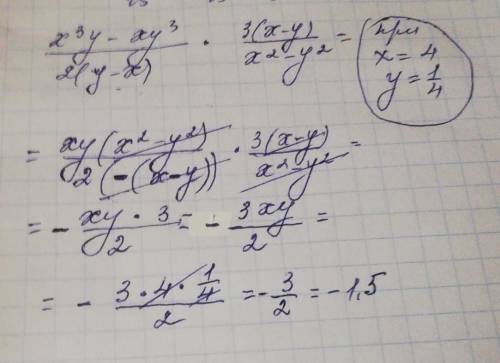 (x³y - xy³)/(2(y-x)) · (3(x-y))/(x²-y²) =
при
x = 4
y = 1/4
= (xy(x²-y²))/(2(-(x-y))) · (3(x-y))/(x²-y²) =
= - (xy · 3)/2 = - (3xy)/2 =
= - (3·4·1/4)/2 = - 3/2 = -1,5